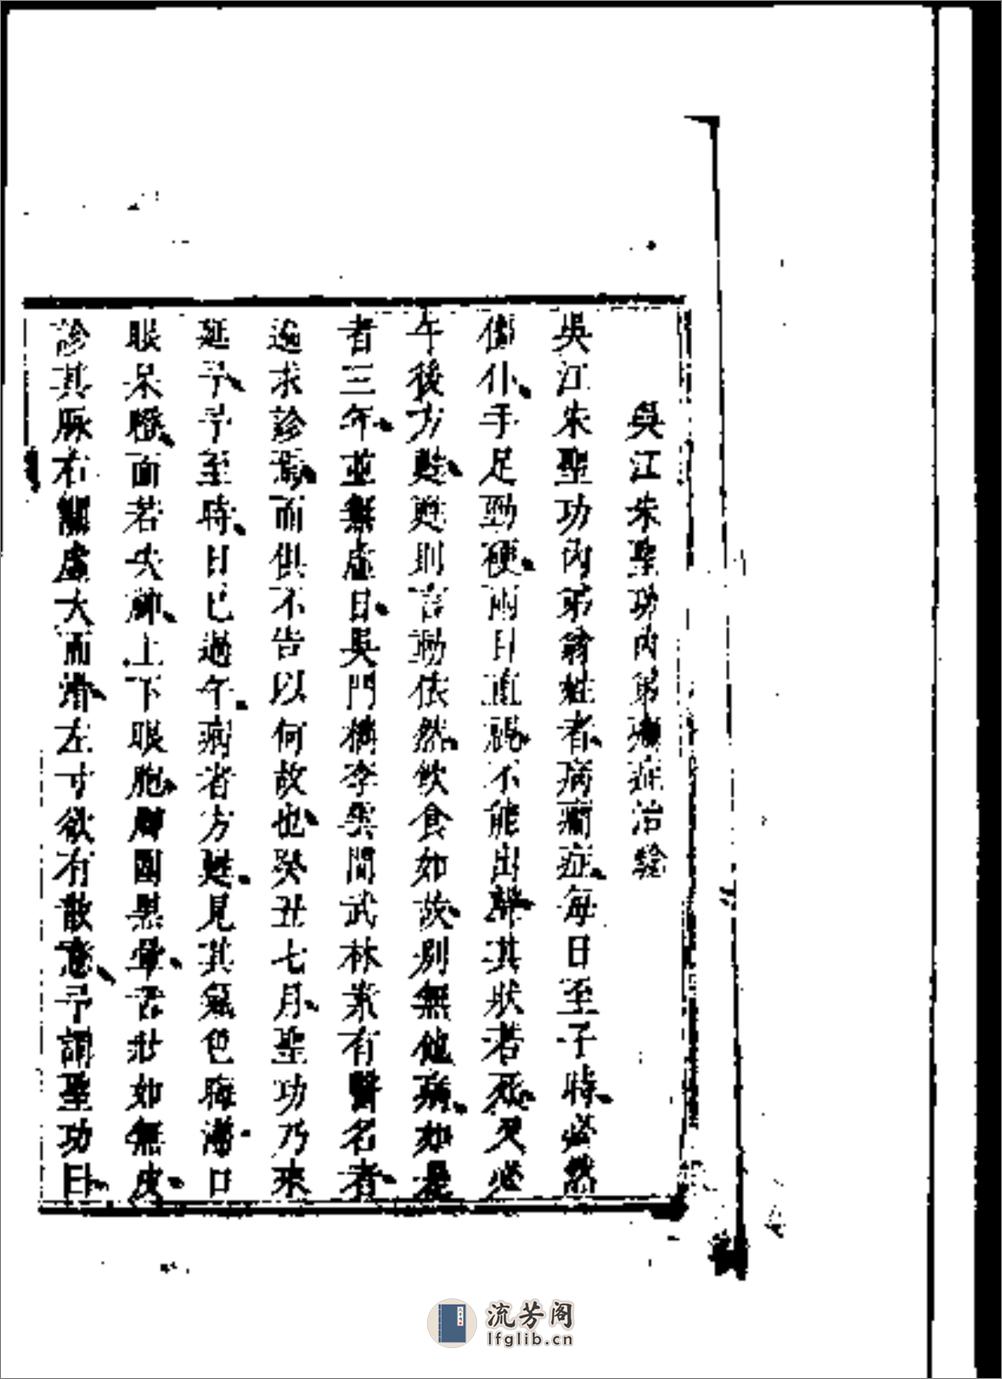 吳江朱聖功內弟癇症治驗
吳江朱聖功內弟翁姓者病癇症每日至子時必然
僵仆手足勁硬兩目直視不能出聲其狀若死又必
午後方甦甦則言動依然飲食如故別無他病如是
者三年並無虛日吳門檇李吳間武林素有醫名者
遍求診焉而俱不告以何故也癸丑七月聖功乃來
延予予至時日已過午病者方甦見其氣色晦滯口
眼呆瞪面若失神上下眼胞周圍黑暈唇壯如無皮
診其脉右關虛大而滑左寸欲有散意予謂聖功曰
流芳阁
lfglib.cn